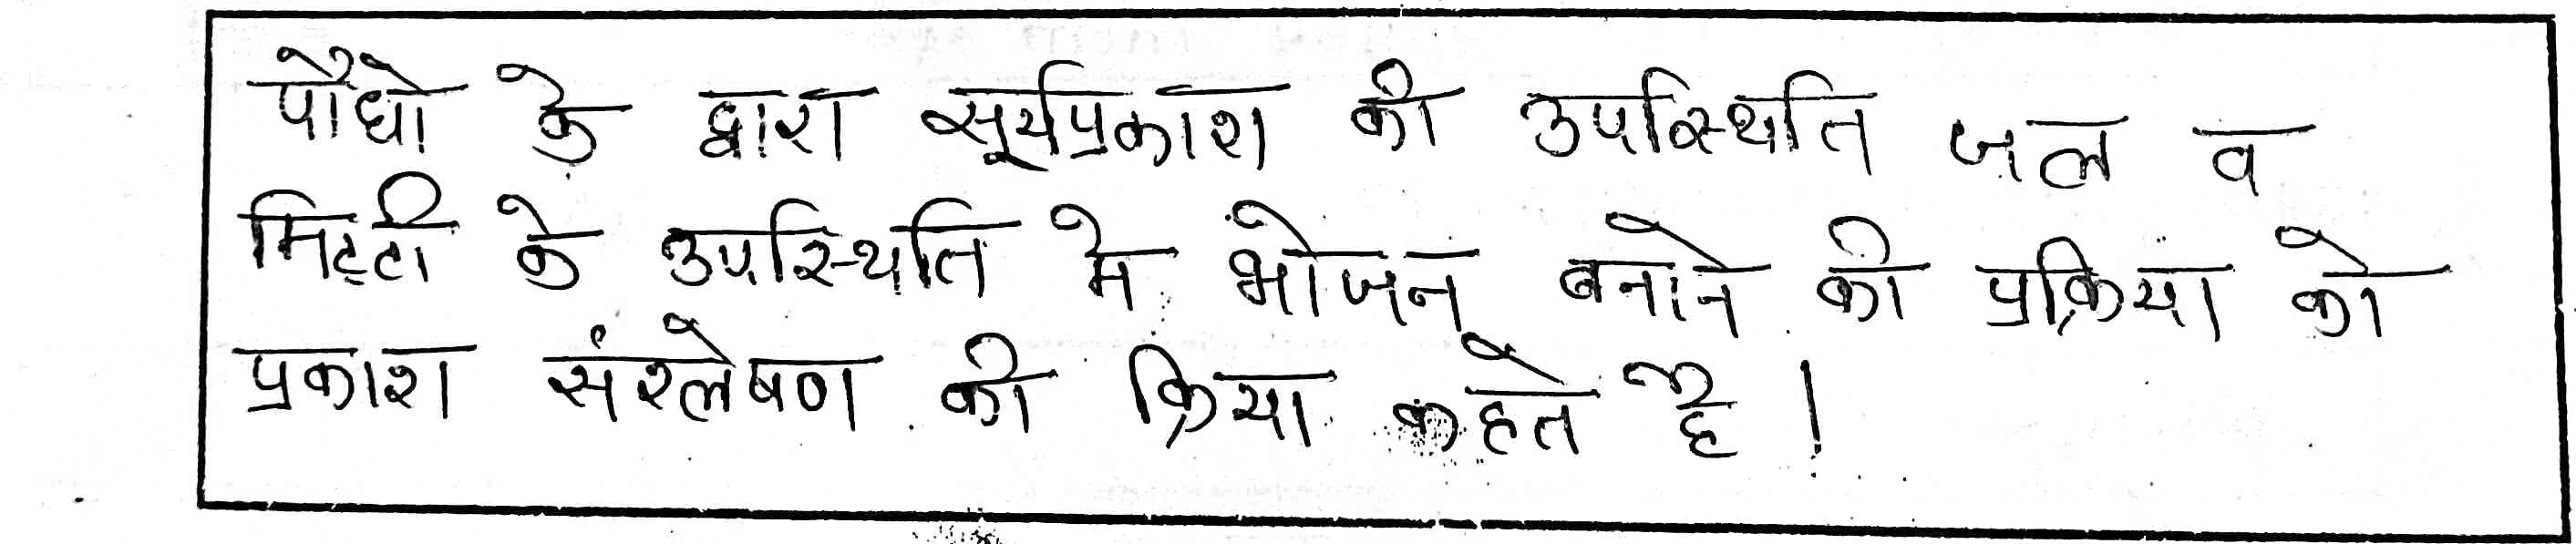 पौधो के द्वारा सूर्यप्रकाश की उपस्थिति जल व
मिट्टी के उपस्थिति मे भोजन बनाने की प्रक्रिया को
प्रकाश संश्लेषण की क्रिया कहते है ।